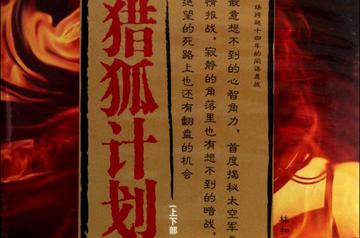 场跨越十四年的间谍
最意想不到的心智角力，首度揭秘太空军
情报战，寂静的角落里也有想不到的暗战，
绝望的死路上也还有翻盘的机会
猎狐计划
(上下部)
林